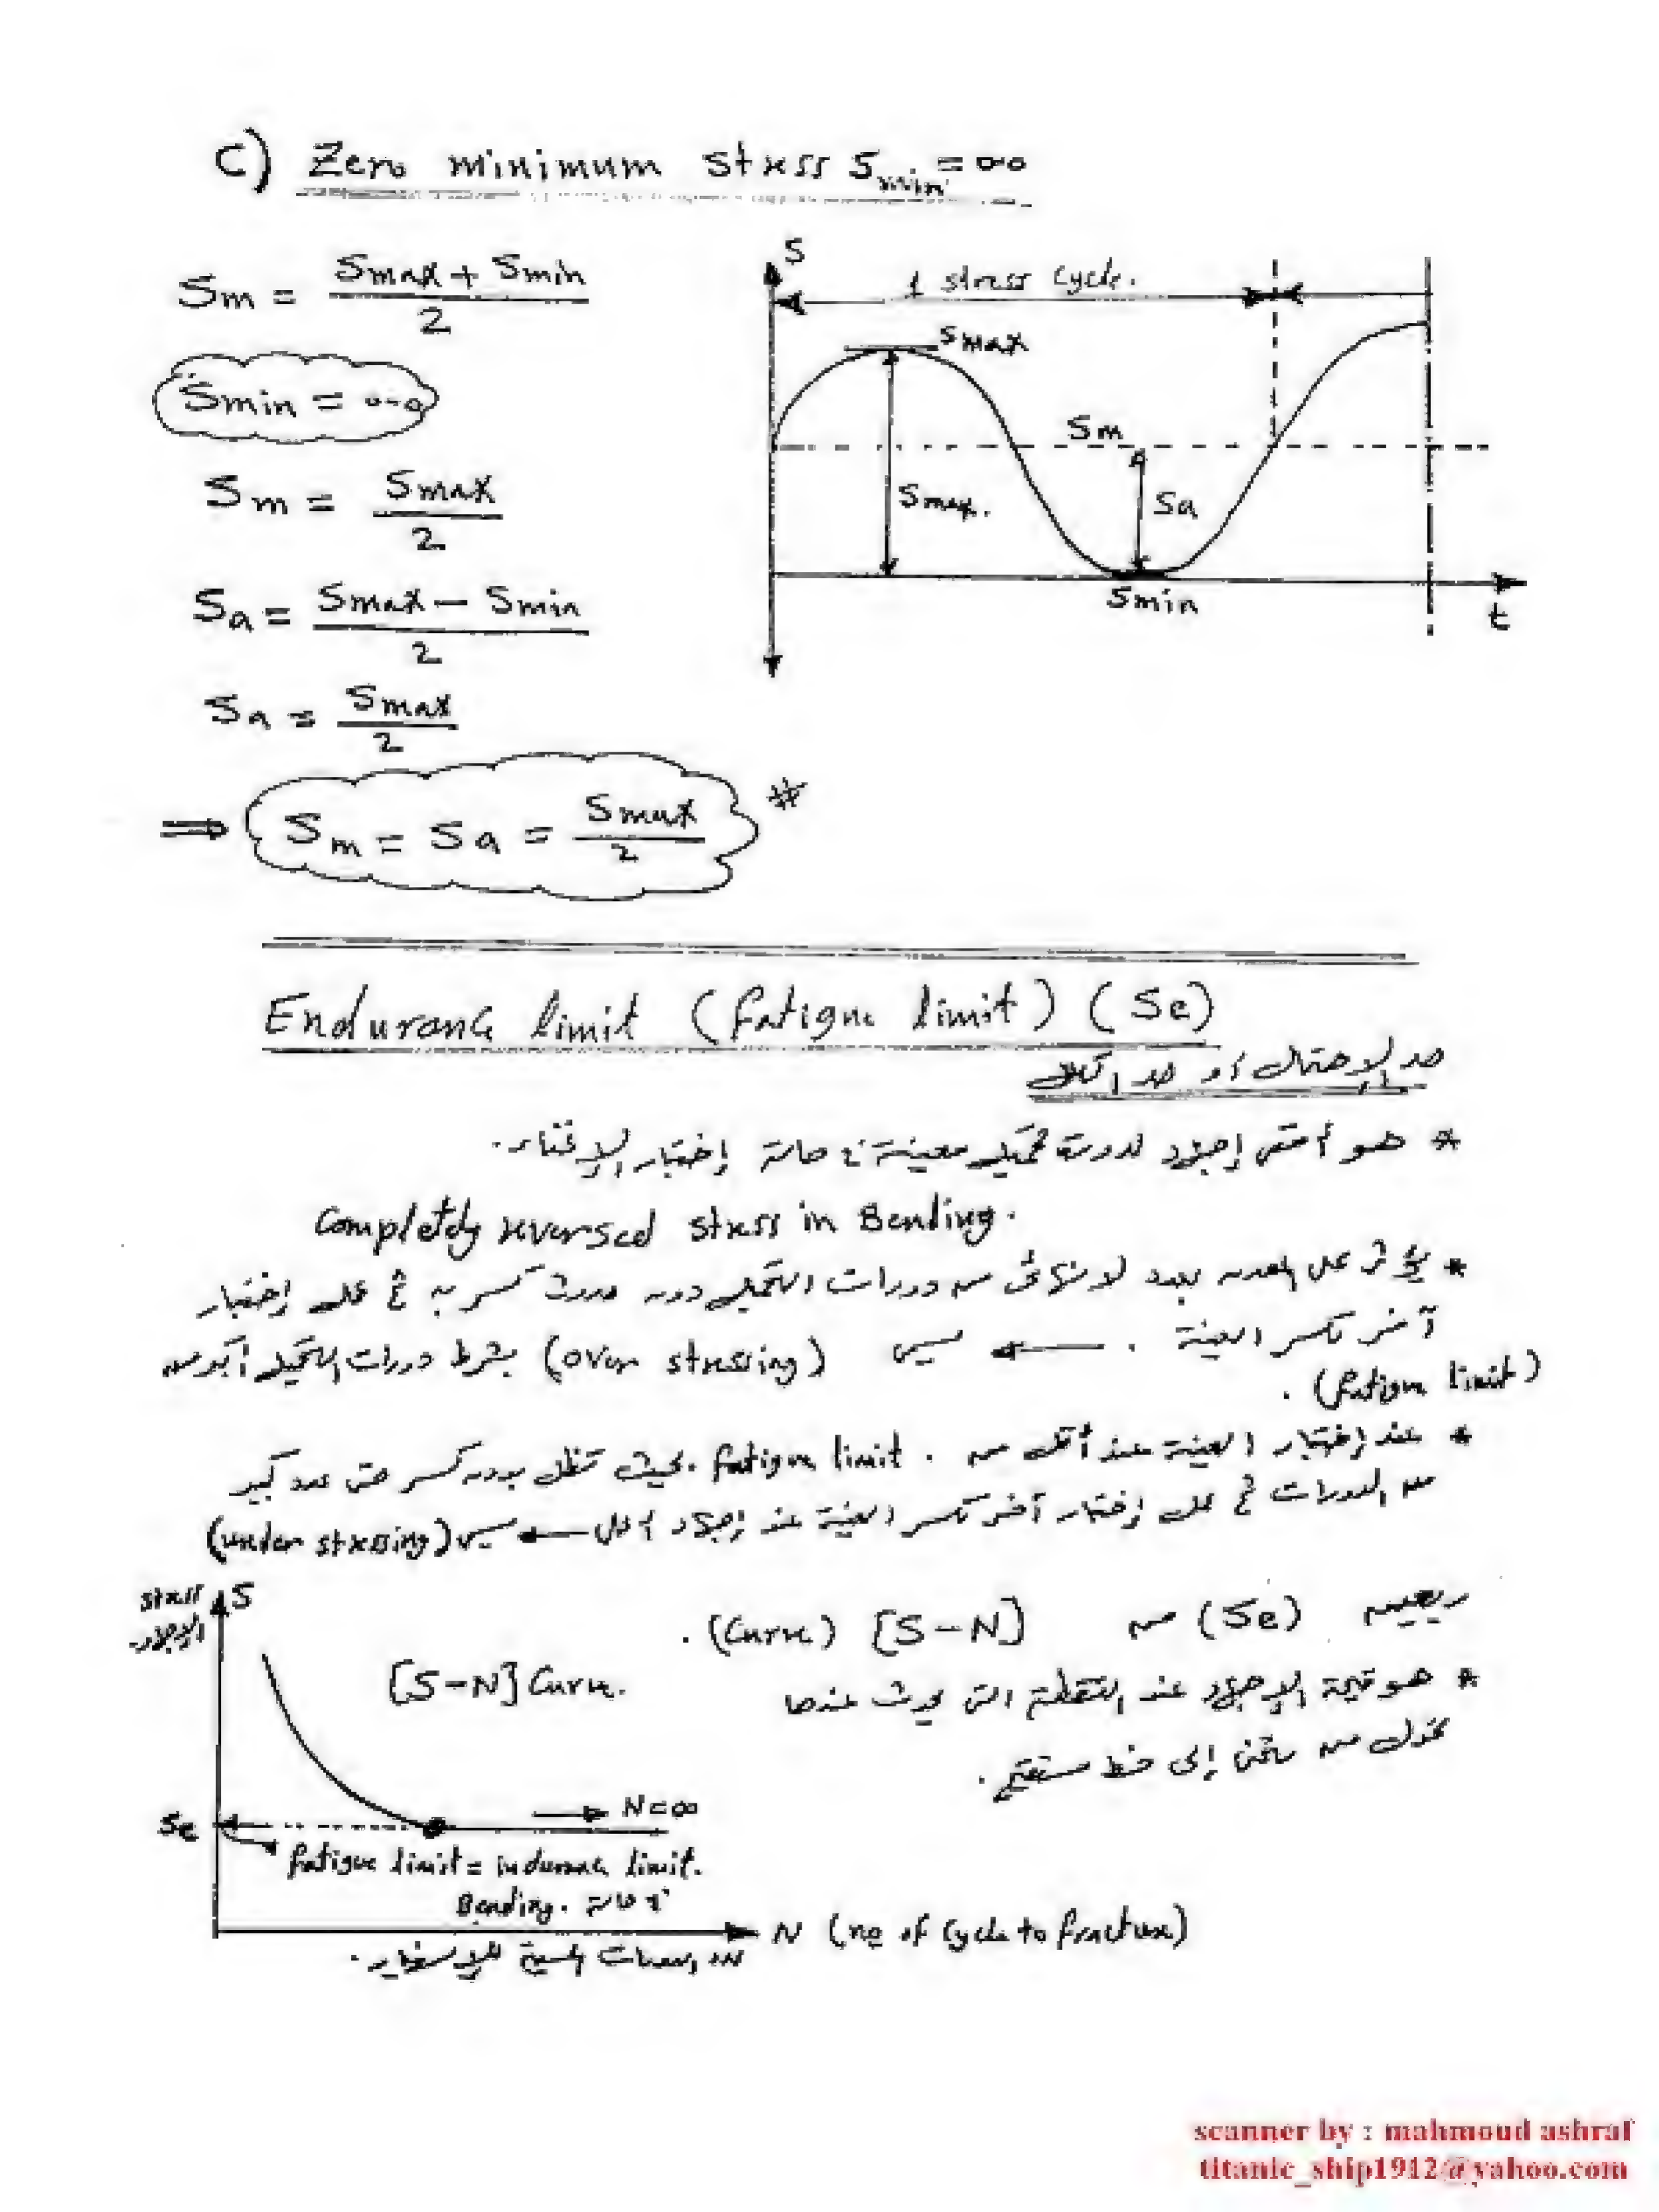 C) Zero minimum stress Smin = 0-0
Sm = (Smax + Smin) / 2
Smin = 0-0
Sm = Smax / 2
Sa = (Smax - Smin) / 2
Sa = Smax / 2
⇒ Sm = Sa = Smax / 2 *
S
1 stress cycle.
Smax
Sm
Smax.
Sa
Smin
t
Endurance limit (fatigue limit) (Se)
حد الإحتمال أو حد الكلال
* هو أقصى إجهاد لدورة تحميل معينة في حالة إختبار الإنحناء.
Completely reversed stress in Bending.
* يؤثر على المعدن بعدد لا نهائى من دورات التحميل دون حدوث كسر به ثم عمل إختبار
آخر تكسر العينة . ← يسمى (over stressing) بشرط دورات التحميل أكبر من
(fatigue limit) .
* عند إختبار العينة عند أقل من fatigue limit . بحيث تظل بدون كسر حتى عدد كبير
من الدورات ثم عمل إختبار آخر تكسر العينة عند إجهاد أعلى ← يسمى (under stressing)
ويعين (Se) من [S-N] (Curve) .
* هو قيمة الإجهاد عند النقطة التى يحدث عندها
تحول من منحنى إلى خط مستقيم .
stress S
الإجهاد
[S-N] Curve.
Se
N=∞
fatigue limit = indurance limit.
Bending. في حالة
N (no of cycle to fracture)
عدد الدورات المسببة للإنهيار.
scanner by : mahmoud ashraf
titanic_ship1912@yahoo.com